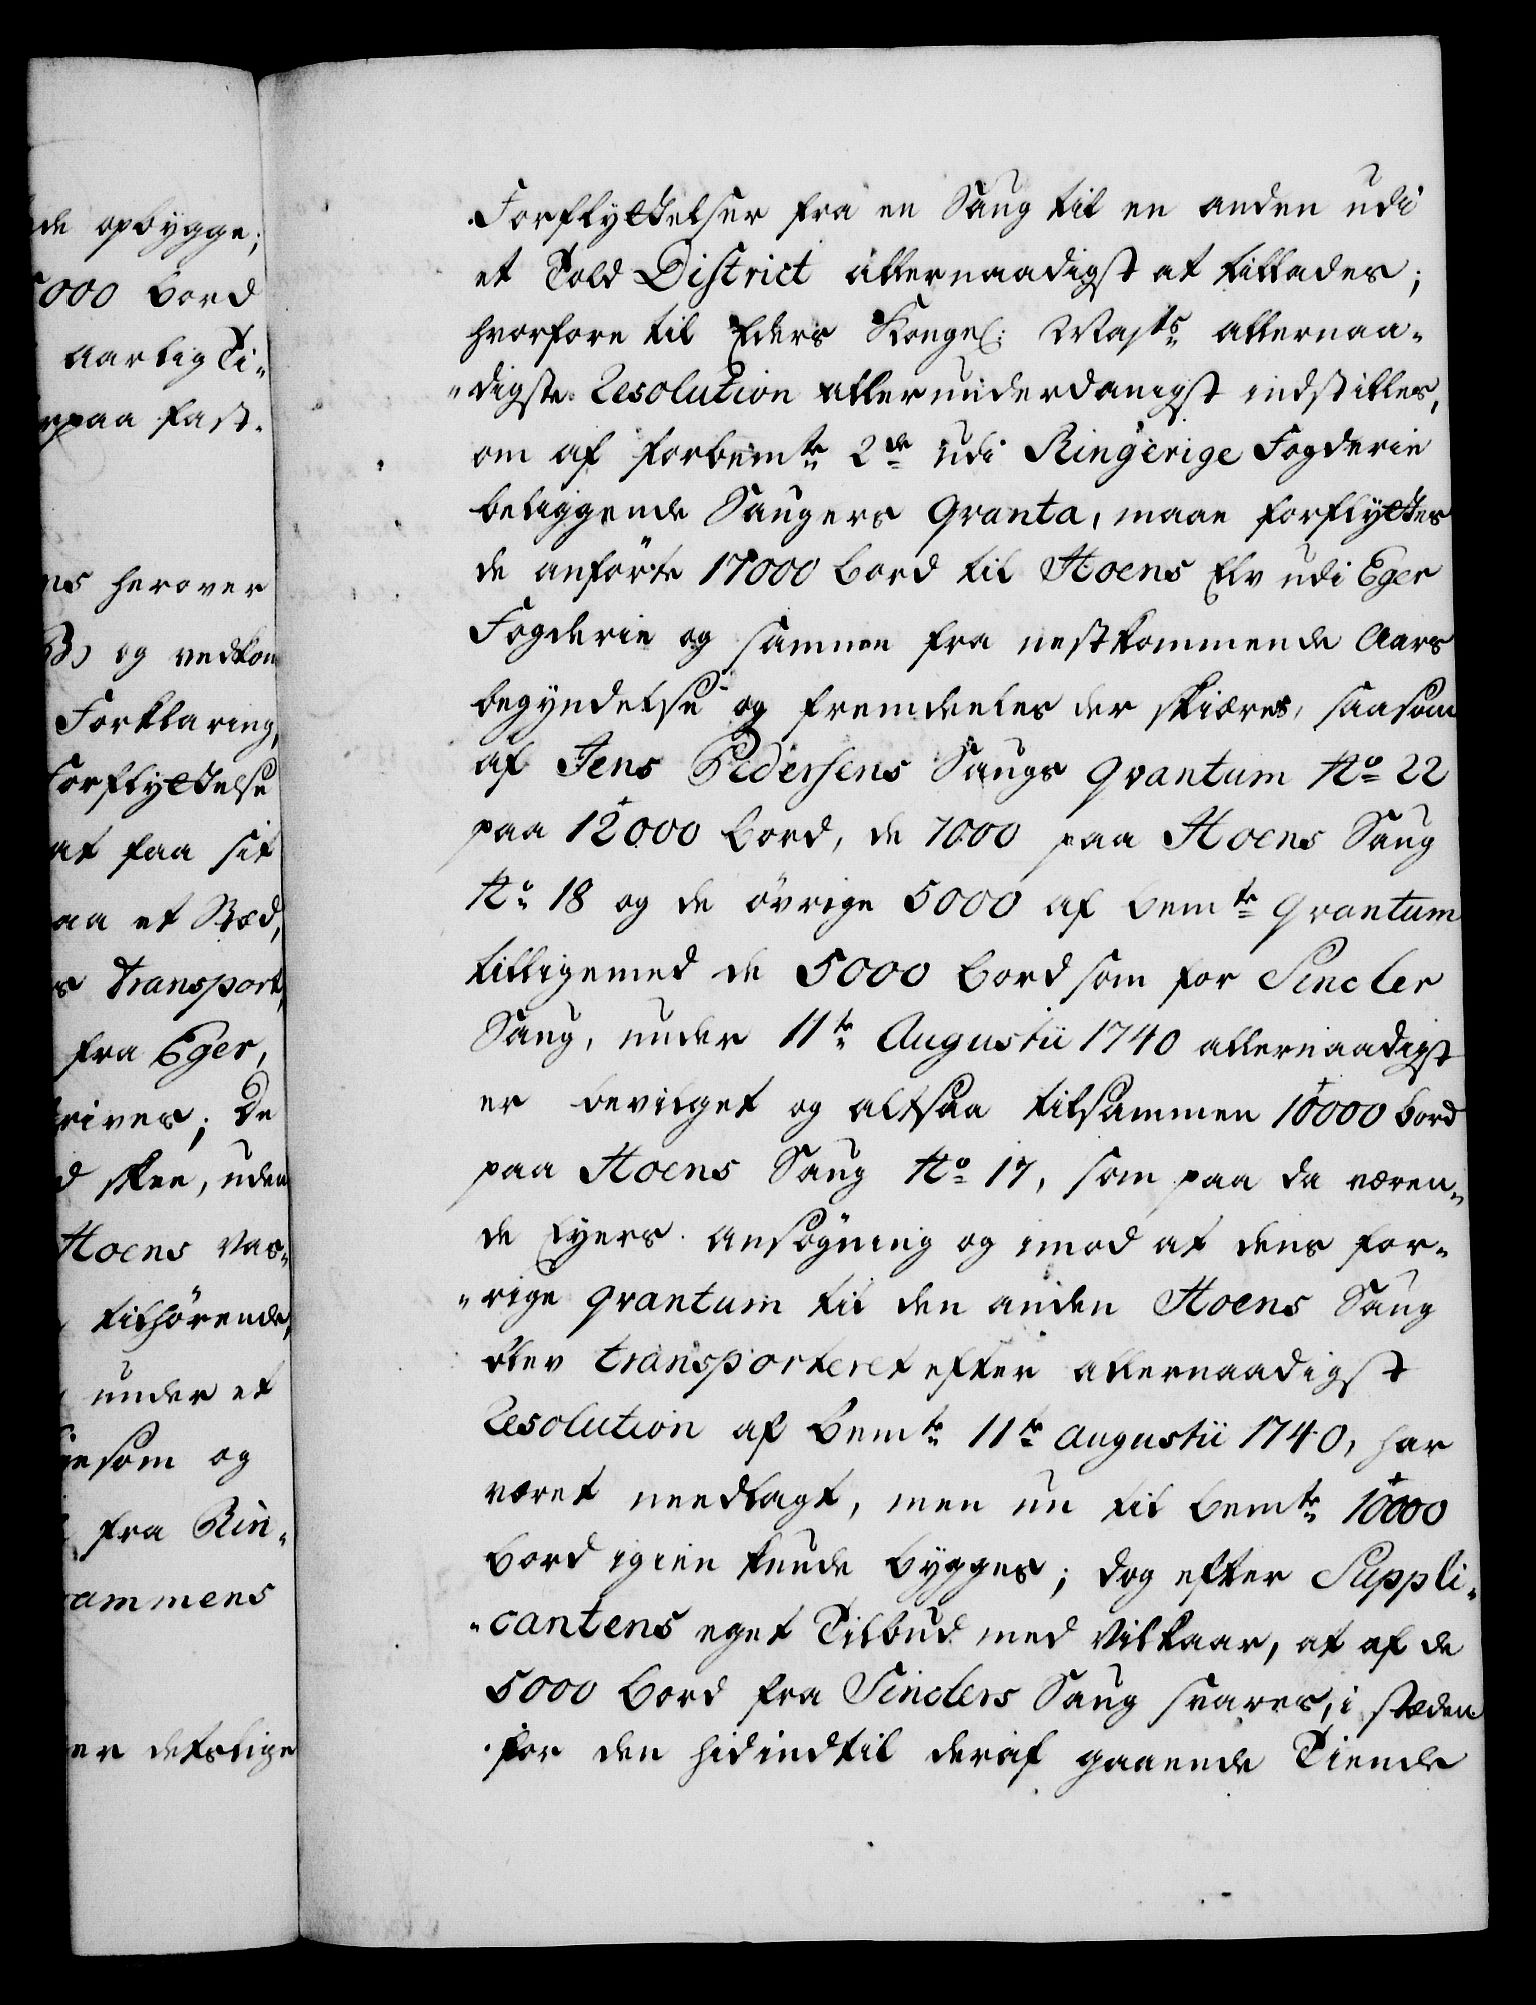 de opbygge;
000 Bord
Aarlig Ti-
rpaa fast-
ns herover
B) og vedkom
Forklaring,
Forflyttelse
at faa sit
aa et Stæd,
s transport,
fra Eger,
rives; De
d skee, uden
Hoens Vas-
tilhørende,
under et
esom og
fra Rin-
ammens
er deslige
Forflyttelser fra en Saug til en anden udi
et Told District allernaadigst at tillades;
hvorfore til Eders Kongel: Majts allernaa-
"digste Resolution allerunderdanigst indstilles,
om af forbemte 2de udi Ringerige Fogderie
beliggende Saugers Qvanta, maae forflyttes
de anførte 17000 Bord til Hoens Elv udi Eger
Fogderie og sammen fra nestkommende Aars
begyndelse og fremdeeles der skiæres, saasom
af Jens Pedersens Saugs Qvantum No 22
paa 12000 Bord, de 7000 paa Hoens Saug
No 18 og de øvrige 5000 af bemte Qvantum
tilligemed de 5000 Bord som for Sincler
Saug, under 11te Augustii 1740 allernaadigst
er bevilget og altsaa tilsammen 10000 Bord
paa Hoens Saug No 17, som paa da væren-
de Eyers ansøgning og imod at dens for-
"rige qvantum til den anden Hoens Saug
blev transporteret efter allernaadigst
Resolution af bemte 11te Augustii 1740, har
været needlagt, men nu til bemte 10000
Bord igien kunde bygges; dog efter Suppli-
"cantens eget Tilbud med Vilkaar, at af de
5000 Bord fra Sinclers Saug svares, i stæden
for den hidindtil deraf gaaende Tiende